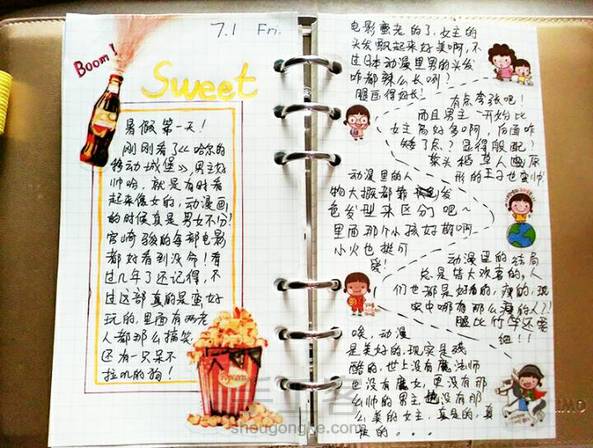 7.1 Fri.
Boom!
Sweet
暑假第一天!
刚刚看了《哈尔的
移动城堡》,男主好
帅的,就是有时看
起来像女的,动漫画
的时候真是男女不分!
宫崎骏的每部电影
都好看到没命!看
过几年了还记得,不
过这部真的是蛮好
玩的,里面有两老
人都那么搞笑,
还有一只呆不
拉叽的狗!
Popcorn
电影蛮老的了,女主的
头发飘起来好美啊,不
过日本动漫里男的头发
咋都辣么长咧?
腿画得超长!
有点夸张吧!
而且男主一开始比
女主高好多啊,后面咋
矮了点?显得般配!
菜头稻草人幽灰
形的王子也蛮帅
动漫里的人
物大概都靠发
色发型来区分吧~
里面那个小孩好萌啊,
小火也挺可
爱!
动漫里的结局
总是皆大欢喜的,人
们也都是好看的,瘦的,现
实中哪有那么瘦的人?!
腿比竹竿还要
细!!
唉,动漫
是美好的,现实是残
酷的,世上没有魔法师
也没有魔女,更没有那
么帅的男主也没有那
么美的女主,真是的,真
是的...
shougongke.com